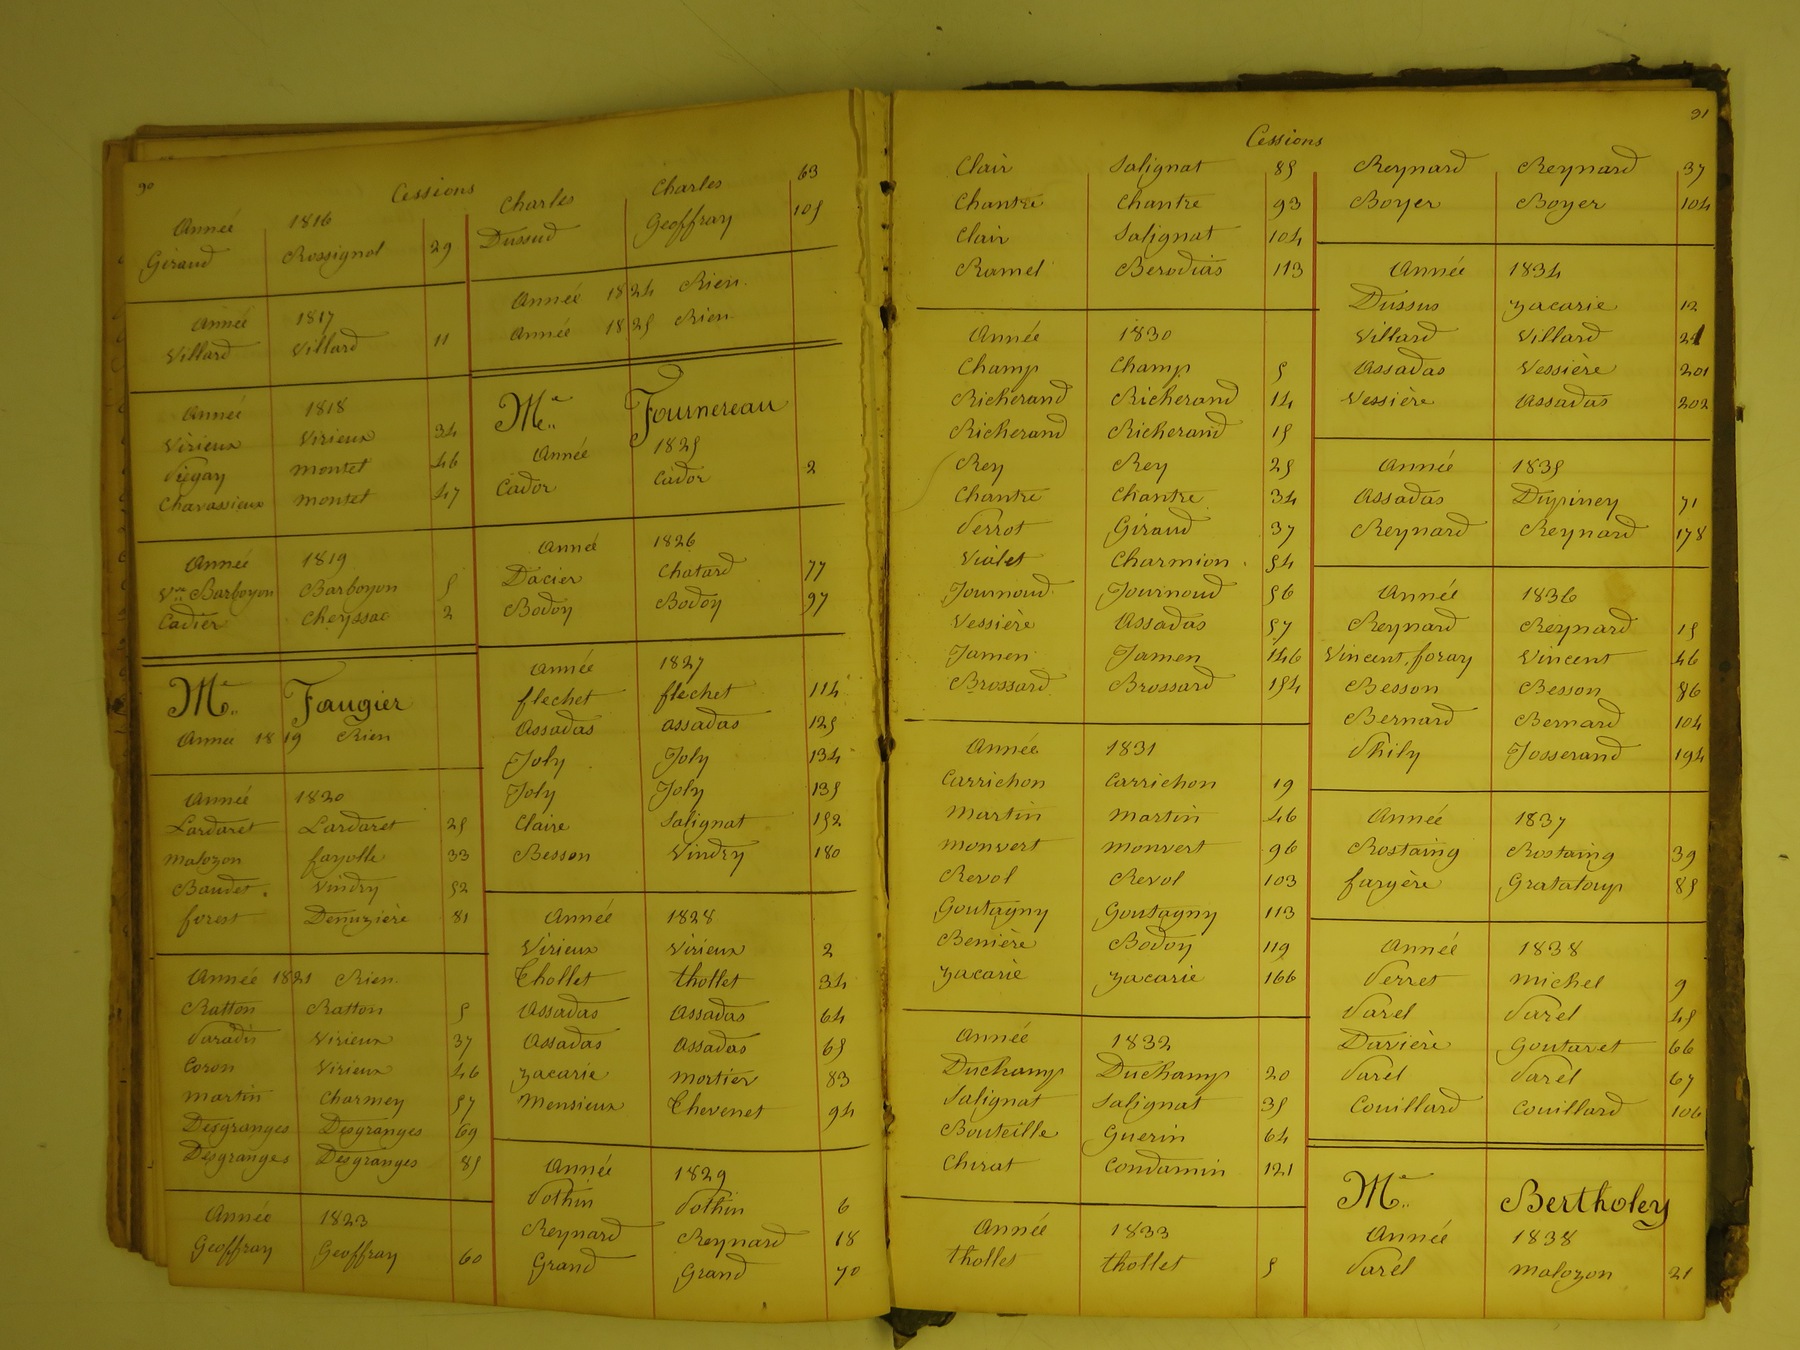 90
Cessions
Année 1816
Giraud Rossignol 29
Année 1817
Villard Villard 11
Année 1818
Virieux Virieux 34
Pugay montet 46
Chavassieux montet 47
Année 1819
Vve Barboyon Barboyon 5
Cadier Cheyssac 2
Me Faugier
Année 1819 Rien
Année 1820
Lardaret Lardaret 25
malozon fayolle 33
Baudet Vindry 52
forest Denuzière 81
Année 1821 Rien
Ratton Ratton 5
Paradis Virieux 37
Coron Virieux 46
martin Charmey 57
Desgranges Desgranges 69
Desgranges Desgranges 85
Année 1823
Geoffray Geoffray 60
Charles Charles 63
Dussud Geoffray 105
Année 1824 Rien.
Année 1825 Rien
Me Fournereau
Année 1825
Cador Cador 2
Année 1826
Dacier Chatard 77
Bodoy Bodoy 97
Année 1827
flechet flechet 114
Assadas assadas 125
Joly Joly 134
Joly Joly 135
Claire Salignat 152
Besson Vindry 180
Année 1828
Virieux Virieux 2
Thollet thollet 34
Assadas Assadas 64
Assadas Assadas 65
zacarie mortier 83
Mensieux Thevenet 94
Année 1829
Pothin Pothin 6
Reynard Reynard 18
Grand Grand 70
91
Cessions
Clair Salignat 85
Chantre Chantre 93
Clair Salignat 104
Ramel Berodias 113
Année 1830
Champ Champ 5
Richerand Richerand 14
Richerand Richerand 15
Rey Rey 25
Chantre Chantre 34
Perrot Giraud 37
Violet Charmion 54
Journoud Journoud 56
Vessière Assadas 57
Jamen Jamen 146
Brossard Brossard 154
Année 1831
Carrichon Carrichon 19
Martin Martin 46
monvert monvert 96
Revol Revol 103
Goutagny Goutagny 113
Benière Bodoy 119
zacarie zacarie 166
Année 1832
Duchamp Duchamp 20
Salignat Salignat 35
Bouteille Guerin 64
Chirat Condamin 121
Année 1833
thollet thollet 5
Reynard Reynard 37
Boyer Boyer 104
Année 1834
Dussus zacarie 12
Villard Villard 21
Assadas Vessière 201
Vessière Assadas 202
Année 1835
Assadas Dupiney 71
Reynard Reynard 178
Année 1836
Reynard Reynard 15
Vincent, foray Vincent 46
Besson Besson 86
Bernard Bernard 104
Phily Josserand 194
Année 1837
Rostaing Rostaing 39
fargère Grataloup 85
Année 1838
Perret michel 9
Parel Parel 45
Davière Goutaret 66
Parel Parel 67
Couillard Couillard 106
Me Bertholey
Année 1838
Parel malozon 21